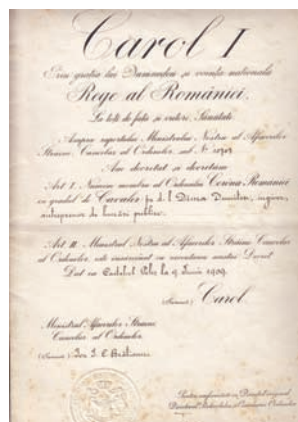 Carol I
Prin gratia lui Dumnezeu si vointa nationala
Rege al României.
La toti de fata si viitori, Sanatate.
Asupra raportului Ministrului Nostru al Afacerilor
Straine, Cancelar al Ordinelor, sub No
Am decretat si decretam
Art I. Numim membru al Ordinului Coroana României
in gradul de Cavaler pe d. l Dima Dumitru, inginer,
antreprenor de lucrări publice.
Art II. Ministrul Nostru al Afacerilor Straine Cancelar
al Ordinelor, este insarcinat cu executarea acestui Decret
Dat in Castelul Peles la 9 Iunie 1909.
(Semnat) Carol
Ministrul Afacerilor Straine
Cancelar al Ordinelor
(Semnat) Ion I. C. Brătianu
Pentru conformitate cu Decretul original
Directorul